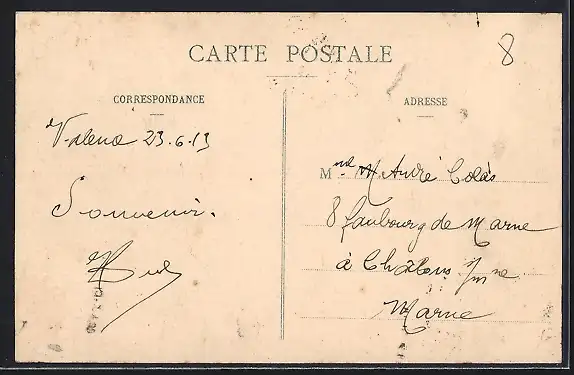 8
CARTE POSTALE
CORRESPONDANCE
ADRESSE
23.6.13
Souvenir.
M André Colas
8 faubourg de Marne
à Châlons s/mne
Marne